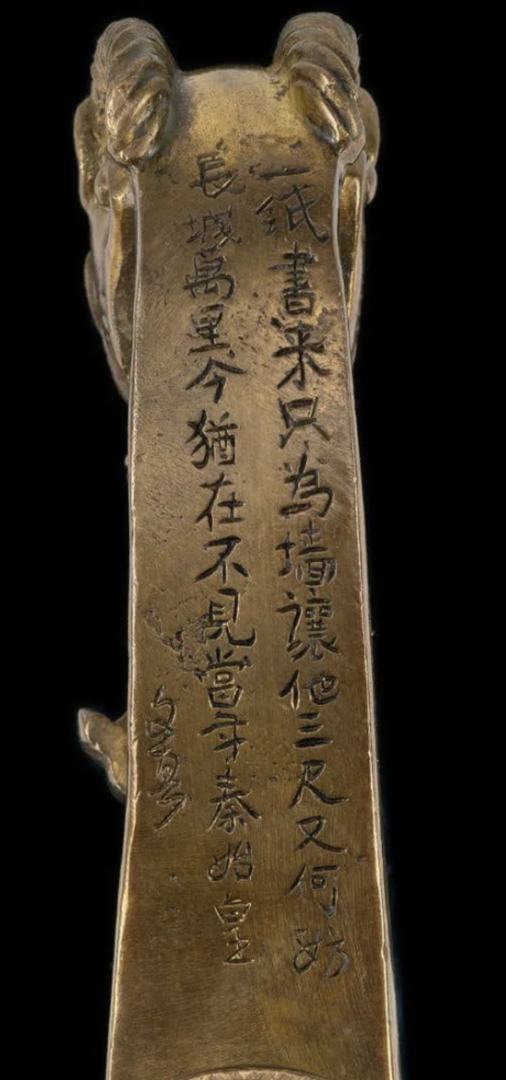 一紙書来只為墙讓他三尺又何妨
長城萬里今猶在不見當年秦始皇